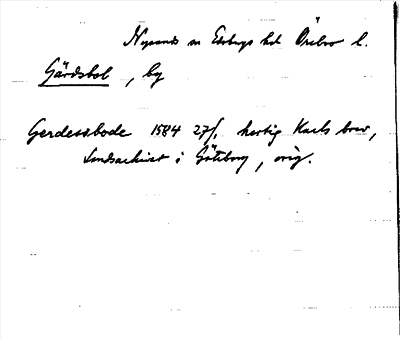 Nysunds sn Edsbergs hd Örebro l.
Gårdsbol, by
Gerdessbode 1584 27/1 hertig Karls brev,
Landsarkivet i Göteborg, orig.